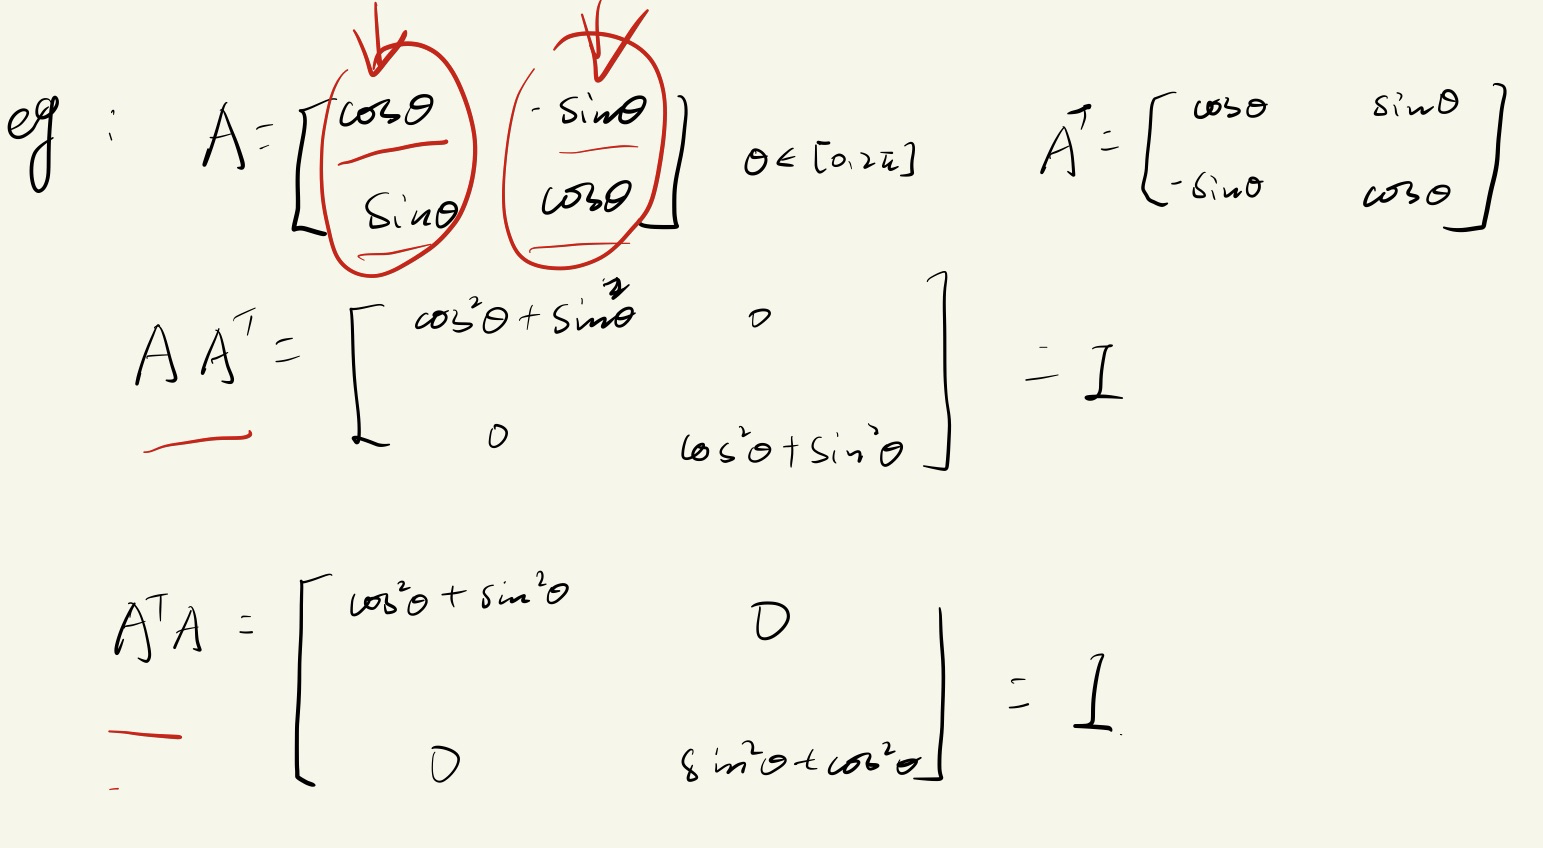 eg : A = [cosθ -sinθ sinθ cosθ] θ ∈ [0, 2π] Aᵀ = [cosθ sinθ -sinθ cosθ]
A Aᵀ = [cos²θ + sin²θ 0 0 cos²θ + sin²θ] = I
AᵀA = [cos²θ + sin²θ 0 0 sin²θ + cos²θ] = I